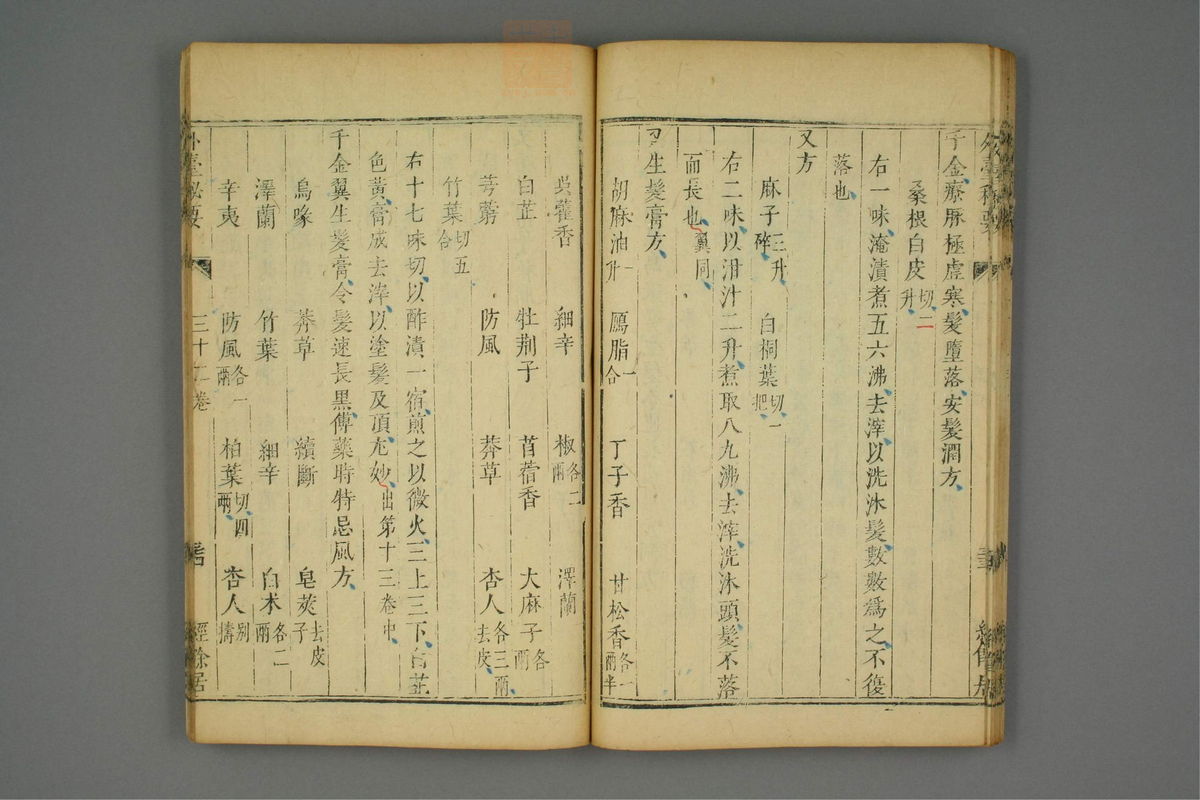 外臺秘要
千金療脉極虛寒髮墮落安髮潤方
桑根白皮切二升
右一味淹漬煮五六沸去滓以洗沐髮數數爲之不復
落也
又方
麻子三升碎 白桐葉切一把
右二味以泔汁二升煮取八九沸去滓洗沐頭髮不落
而長也翼同
又生髮膏方
胡麻油一升 鴈脂一合 丁子香 甘松香各一兩半
吳藿香 細辛 椒各二兩 澤蘭
白芷 牡荆子 苜蓿香 大麻子各一兩
芎藭 防風 莽草 杏人各三兩去皮
竹葉切五合
右十七味切以酢漬一宿煎之以微火三上三下白芷
色黃膏成去滓以塗髮及頂尤妙出第十三卷中
千金翼生髮膏令髮速長黑傅藥時特忌風方
烏喙 莽草 續斷 皂莢去皮子
澤蘭 竹葉 細辛 白术各二兩
辛夷 防風各一兩 柏葉切四兩 杏人別擣
外臺秘要 三十二卷 經餘居